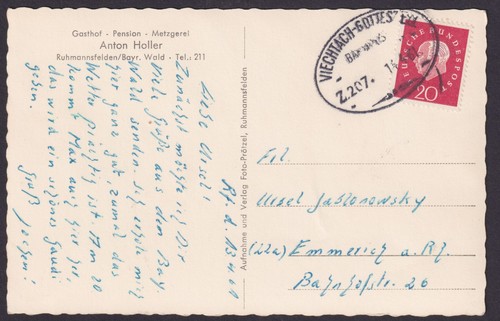 Gasthof - Pension - Metzgerei
Anton Holler
Ruhmannsfelden/Bayr. Wald - Tel.: 211
Rf. d. 13.4.60
Liebe Ursel!
Zunächst möchte ich Dir
viele Grüße aus dem Bay.
Wald senden. Ich erhole mich
hier ganz gut, zumal das
Wetter prächtig ist. Um 20
kommt Max auch hier her
das wird ein schönes Gaudi
geben.
Gruß Jochen!
Aufnahme und Verlag Foto-Prötzel, Ruhmannsfelden
VIECHTACH-GOTTESZELL
BAHNPOST
Z.207.
DEUTSCHE BUNDESPOST
20
Frl.
Ursel Jablonowsky
(22a) Emmerich a. Rh.
Bahnhofstr. 26